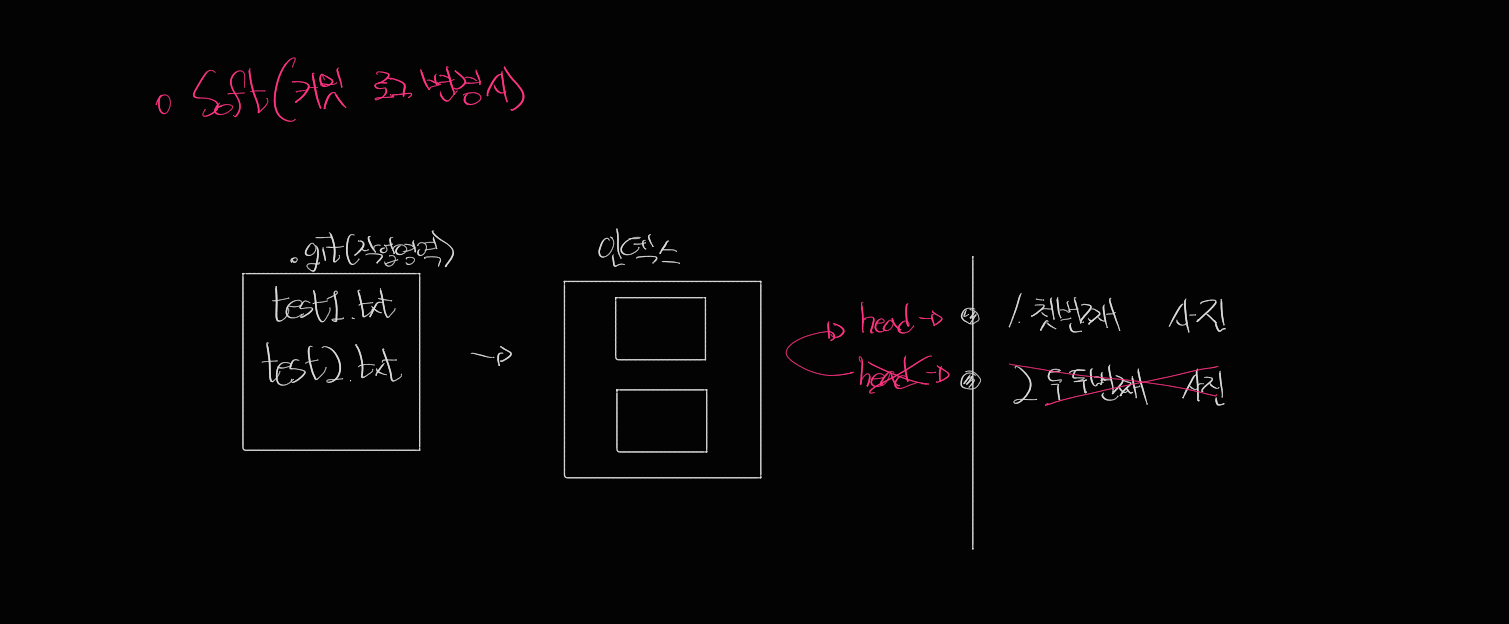 o Soft(커밋 로그 변경시)
.git(작업영역)
인덱스
test1.txt
test2.txt
head
1. 첫번째 사진
head
2 두번째 사진